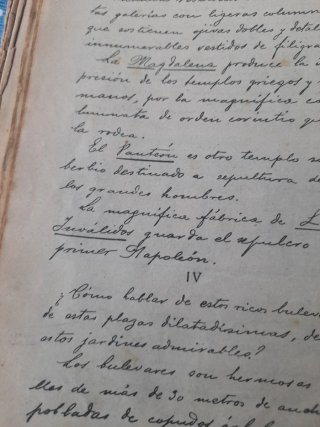 las galerías con ligeras column
que sostienen ojivas dobles y dotal
innumerables vestidos de filigra
La Magdalena produce la i
presión de los templos griegos y
manos, por la magnífica co
lumnata de orden corintio qu
la rodea.
El Panteón es otro templo so
berbio destinado a sepultura de
los grandes hombres.
La magnífica fábrica de L
Inválidos guarda el sepulcro
primer Napoleón.
IV
¿Cómo hablar de estos ricos buleva
de estas plazas dilatadísimas, de
estos jardines admirables?
Los bulevares son hermosas
lles de más de 30 metros de anch
pobladas de copudos